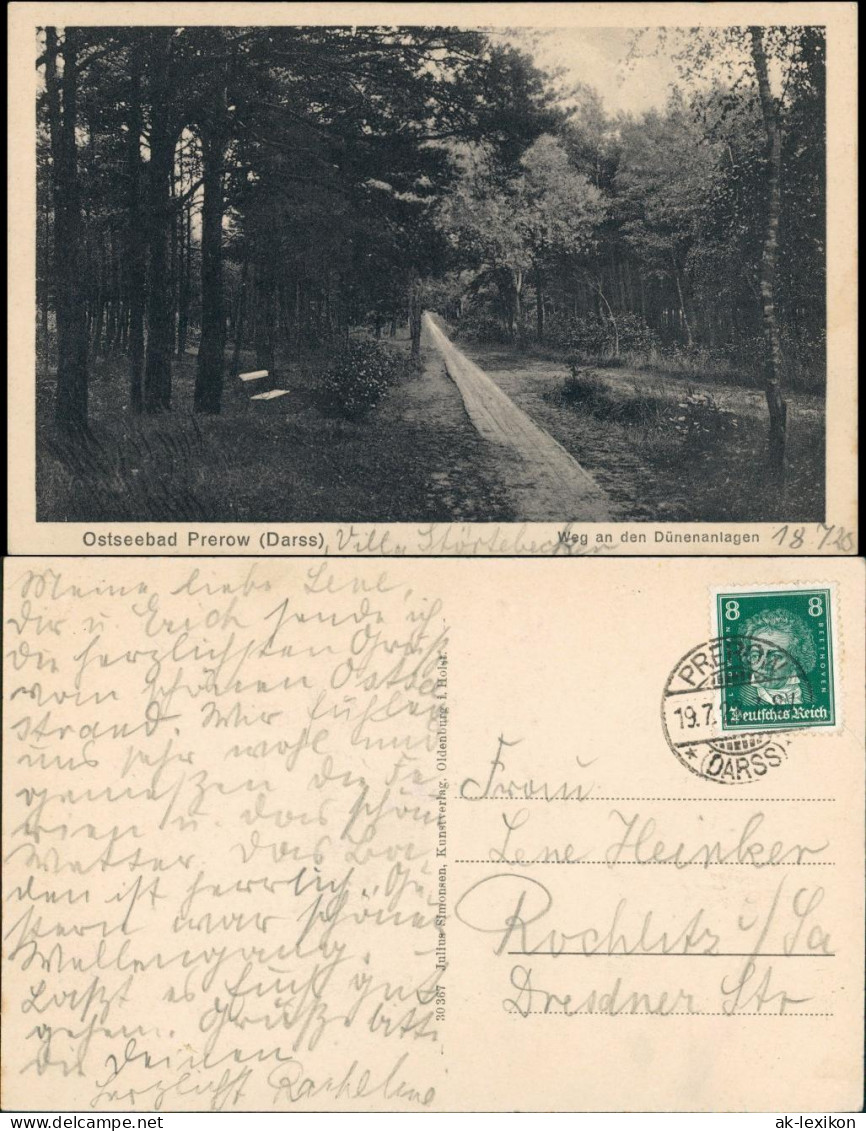 Ostseebad Prerow (Darss), Villa Störtebecker Weg an den Dünenanlagen 18.7.28
Meine liebe Lene,
dir u Erich sende ich
die herzlichsten Grüße
vom schönen Ostsee
strand. Wir fühlen
uns sehr wohl und
genießen die Fe
rien u. das schöne
Wetter. Das Ba
den ist herrlich. Ge
stern war schöner
Wellengang.
Laßt es Euch gut
gehen. Grüße bitte
die Deinen
herzlichst
30367 Julius Simonsen, Kunstverlag, Oldenburg i. Holst.
8 8
BEETHOVEN
Deutsches Reich
PREROW
19.7.
* (DARSS)
Frau
Lene Heinker
Rochlitz i/Sa
Dresdner Str
ak-lexikon ak-lexikon.com